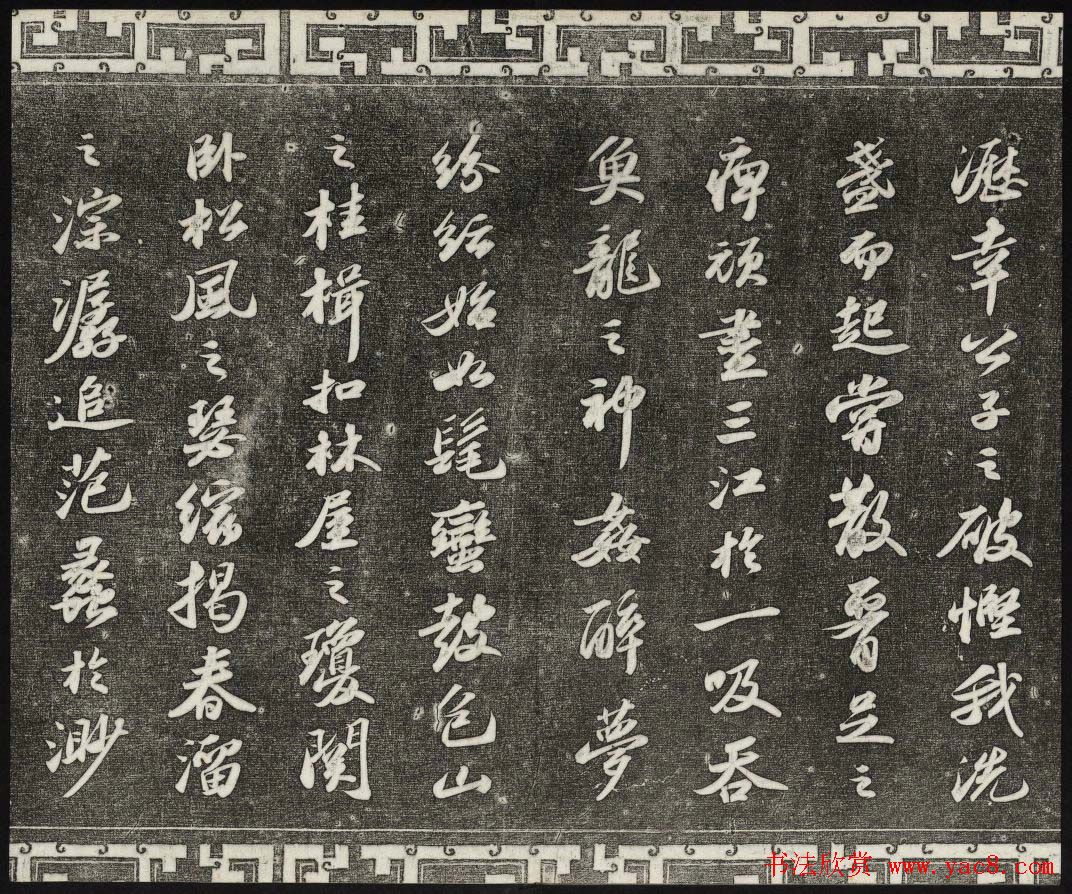 瀝幸公子之破慳我洗
盞而起嘗散腰足之
痺頑盡三江於一吸吞
魚龍之神姦醉夢
紛紜始如髦蠻鼓包山
之桂楫扣林屋之瓊関
卧松風之瑟縮揭春溜
之淙潺追范蠡於渺
书法欣赏 www.yac8.com